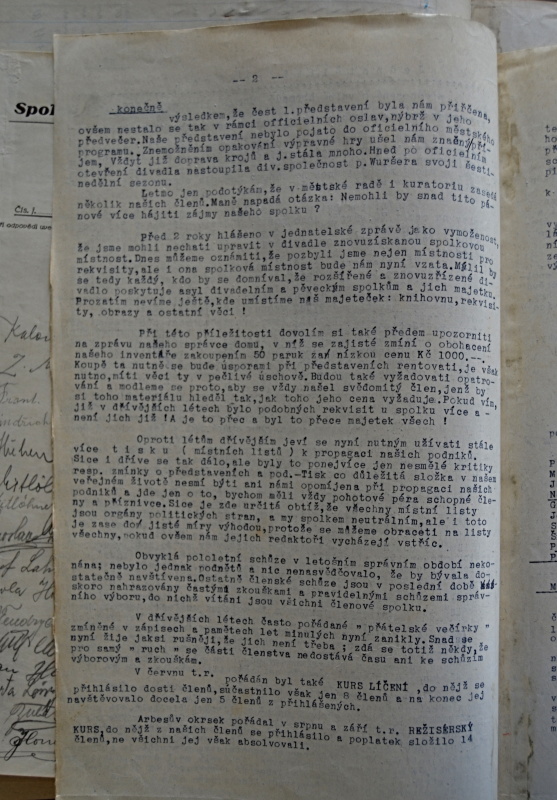 -- 2 --
konečně
výsledkem,že čest 1.představení byla nám přiřčena,
ovšem nestalo se tak v rámci officielních oslav,nýbrž v jeho
předvečer.Naše představení nebylo pojato do oficielního městského
programu. Znemožněním opakování výpravné hry ušel nám značný pří-
jem, Vždyť již doprava krojů a j.stála mnoho. Hned po oficielním
otevření divadla nastoupila div.společnost p.Wuršera svoji šesti-
nedělní sezonu.
Letmo jen podotýkám,že v městské radě i kuratoriu zasedá
několik našich členů.Maně napadá otázka: Nemohli by snad tito pá-
nové více hájiti zájmy našeho spolku ?
Před 2 roky hlášeno v jednatelské zprávě jako vymoženost,
že jsme mohli nechati upravit v divadle znovuzískanou spolkovou
místnost.Dnes můžeme oznámiti,že pozbyli jsme nejen místnosti pro
rekvisity,ale i ona spolková místnost bude nám nyní vzata.Mýlil by
se tedy každý, kdo by se domníval,že rozšířené a znovuzřízené di-
vadlo poskytuje asyl divadelním a pěveckým spolkům a jich majetku.
Prozatím nevíme ještě,kde umístíme náš majeteček: knihovnu,rekvisi-
ty, obrazy a ostatní věci !
Při této příležitosti dovolím si také předem upozorniti
na zprávu našeho správce domu, v níž se zajisté zmíní o obohacení
našeho inventáře zakoupením 50 paruk za nízkou cenu Kč 1000.--.
Koupě ta nutně se bude úsporami při představeních rentovati,je však
nutno,míti věci ty v pečlivé úschově.Budou také vyžadovati opatro-
vání a modleme se proto,aby se vždy našel svědomitý člen,jenž by
si toho materiálu hleděl tak,jak toho jeho cena vyžaduje.Pokud vím,
již v dřívějších létech bylo podobných rekvisit u spolku více a -
není jich již !A je to přec a byl to přece majetek všech !
Oproti létům dřívějším jeví se nyní nutným užívati stále
více t i s k u ( místních listů ) k propagaci našich podniků.
Sice i dříve se tak dálo,ale byly to ponejvíce jen nesmělé kritiky
resp. zmínky o představeních a pod.-Tisk co důležitá složka v našem
veřejném životě nesmí býti ani námi opomíjena při propagaci našich
podniků a jde jen o to, bychom měli vždy pohotové péra schopné čle-
ny a příznivce.Sice je zde určitá obtíž,že všechny místní listy
jsou orgány politických stran, a my spolkem neutrálním,ale i toto
je zase do jisté míry výhodou,protože se můžeme obraceti na listy
všechny,pokud ovšem nám jejich redaktoři vycházejí vstříc.
Obvyklá pololetní schůze v letošním správním období neko-
nána; nebylo jednak podnětů a nic nenasvědčovalo, že by bývala do-
statečně navštívena.Ostatně členské schůze jsou v poslední době
skoro nahrazovány častými zkouškami a pravidelnými schůzemi správ-
ního výboru,do nichž vítáni jsou všichni členové spolku.
V dřívějších létech často pořádané " přátelské večírky "
zmíněné v zápisech a pamětech let minulých nyní zanikly. Snad se
nyní žije jaksi rušněji,že jich není třeba ; zdá se totiž někdy,že
pro samý " ruch " se části členstva nedostává času ani ke schůzím
výborovým a zkouškám.
V červnu t.r.
pořádán byl také KURS LÍČENÍ ,do nějž se
přihlásilo dosti členů,súčastnilo však jen 8 členů a na konec jej
navštěvovalo docela jen 5 členů z přihlášených.
Arbesův okrsek pořádal v srpnu a září t.r. REŽISÉRSKÝ
KURS,do nějž z našich členů se přihlásilo a poplatek složilo 14
členů,ne všichni jej však absolvovali.
Spol
Čís. j.